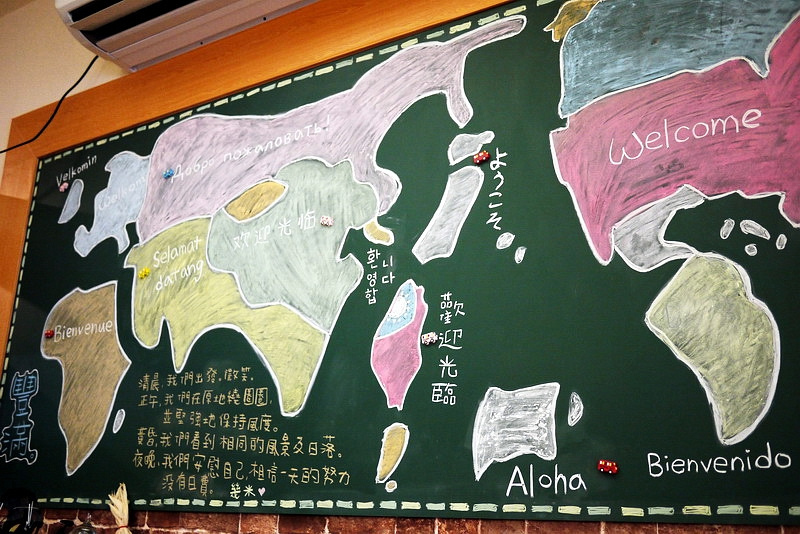 Velkomin
Welkom
Добро пожаловать!
ようこそ
Welcome
Selamat
datang
欢迎光临
환영합
니다
Bienvenue
歡迎光臨
豐滿。
清晨,我們出發。微笑。
正午,我們在原地繞圈圈,
並堅強地保持風度。
黃昏,我們看到相同的風景及日落。
夜晚,我們安慰自己,相信一天的努力
沒有白費。
幾米♥
Aloha
Bienvenido